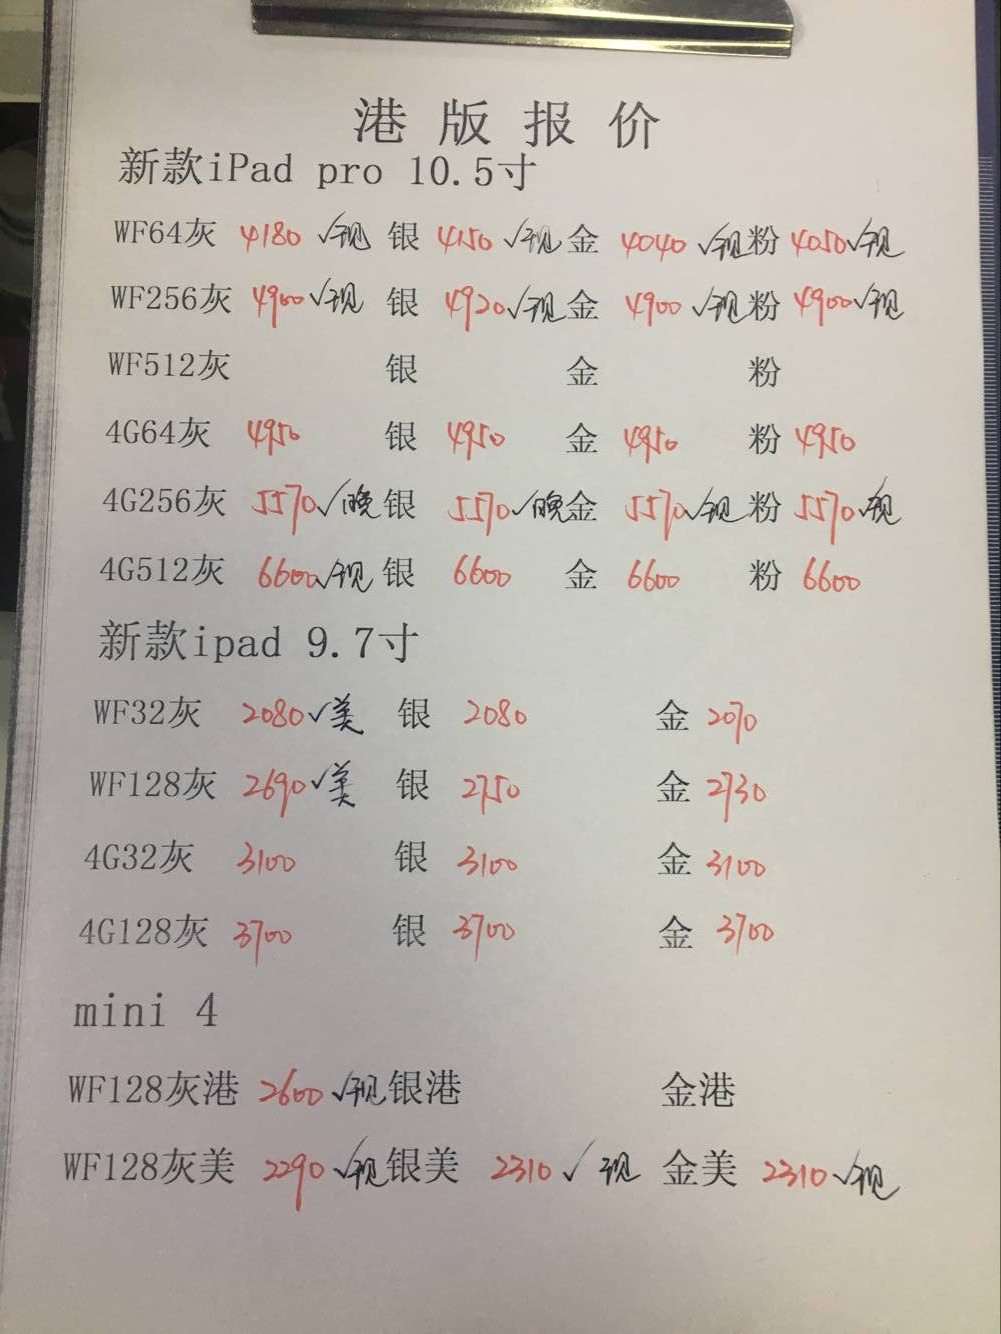 港版报价
新款iPad pro 10.5寸
WF64灰 4180 √现 银 4150 √现 金 4040 √现 粉 4050 √现
WF256灰 4900 √现 银 4920 √现 金 4900 √现 粉 4900 √现
WF512灰 银 金 粉
4G64灰 4950 银 4950 金 4950 粉 4950
4G256灰 5570 √晚 银 5570 √晚 金 5570 √现 粉 5570 √现
4G512灰 6600 √现 银 6600 金 6600 粉 6600
新款ipad 9.7寸
WF32灰 2080 √美 银 2080 金 2070
WF128灰 2690 √美 银 2750 金 2730
4G32灰 3100 银 3100 金 3100
4G128灰 3700 银 3700 金 3700
mini 4
WF128灰港 2600 √现 银港 金港
WF128灰美 2290 √现 银美 2310 √ 现 金美 2310 √现